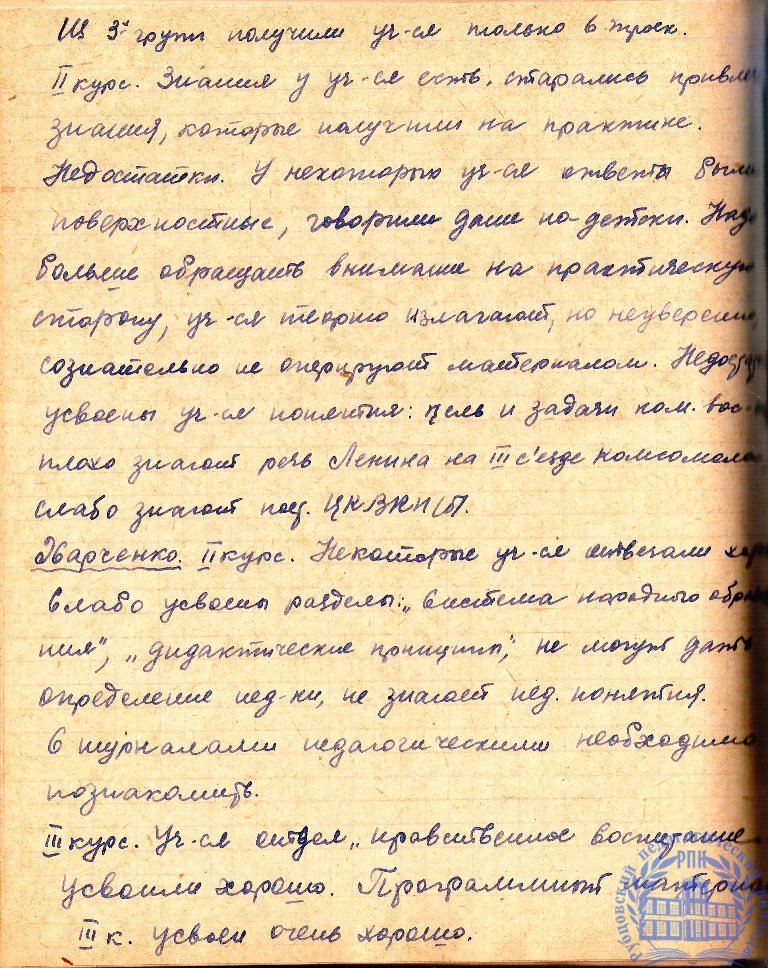 Из 3х групп получили уч-ся только 6 троек.
II курс. Знания у уч-ся есть, старались привле
знания, которые получили на практике.
Недостатки. У некоторых уч-ся ответы были
поверхностные, говорили даже по-детски. Надо
больше обращать внимание на практическую
сторону, уч-ся теорию излагают, но неуверенно,
сознательно не оперируют материалом.
усвоены уч-ся понятия: цель и задачи ком. вос-
плохо знают речь Ленина на III с'езде комсомола
слабо знают пос. ЦК ВКП(б).
Харченко. II курс. Некоторые уч-ся отвечали хор
Слабо усвоены разделы: „Система народного образ
ния", „Дидактические принципы", не могут дать
определение пед-ки, не знают пед. понятия.
С журналами педагогическими необходимо
познакомить.
III курс. Уч-ся отдел „нравственное воспитание
усвоили хорошо. Программный материал
III к. усвоен очень хорошо.
Рубцовский педагогический
РПК